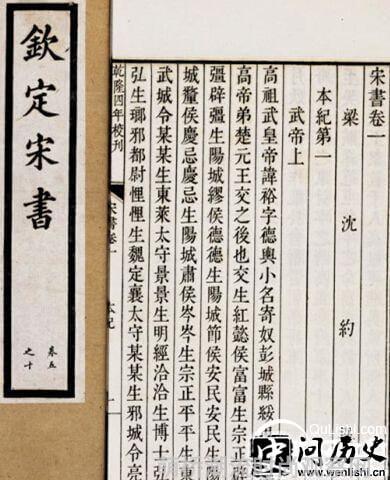 宋書卷一
梁 沈 約
本紀第一
武帝上
高祖武皇帝諱裕字德輿小名寄奴彭城縣綏
高帝弟楚元王交之後也交生紅懿侯富富生宗
彊辟彊生陽城繆侯德德生陽城節侯安民安民生
城釐侯慶忌慶忌生陽城肅侯岑岑生宗正平平生
武城令某某生東萊太守景景生明經洽洽生博士弘
弘生琅邪都尉悝悝生魏定襄太守某某生邪城令亮
乾隆四年校刊
宋書卷一
本紀
一
欽定宋書
卷五
之十
QuLishi.com
问历史
www.wenlishi.cn